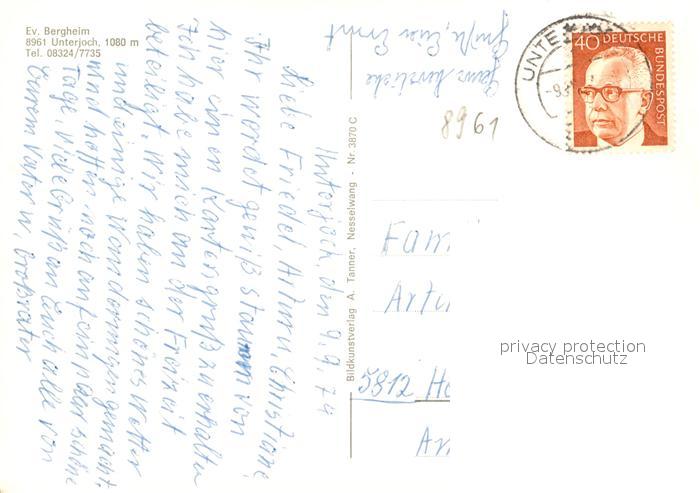 Ev. Bergheim
8961 Unterjoch, 1080 m
Tel. 08324/7735
Unterjoch, den 9.9.74
Liebe Friedel, Artur u. Christiane,
Ihr werdet gewiß staunen von
hier einen Kartengruß zu erhalten
Ich habe mich an der Freizeit
beteiligt. Wir haben schönes Wetter
und einige Wanderungen gemacht.
und hoffen noch auf ein paar schöne
Tage. Viele Grüße an Euch alle von
Eurem Vater u. Großvater
Ganz herzliche
Grüße, Euer Ernst
Bildkunstverlag A. Tanner, Nesselwang - Nr. 3870 C
UNTE
-9.
40 DEUTSCHE BUNDESPOST
8961
Fam
Artu
5812 He
An
privacy protection
Datenschutz